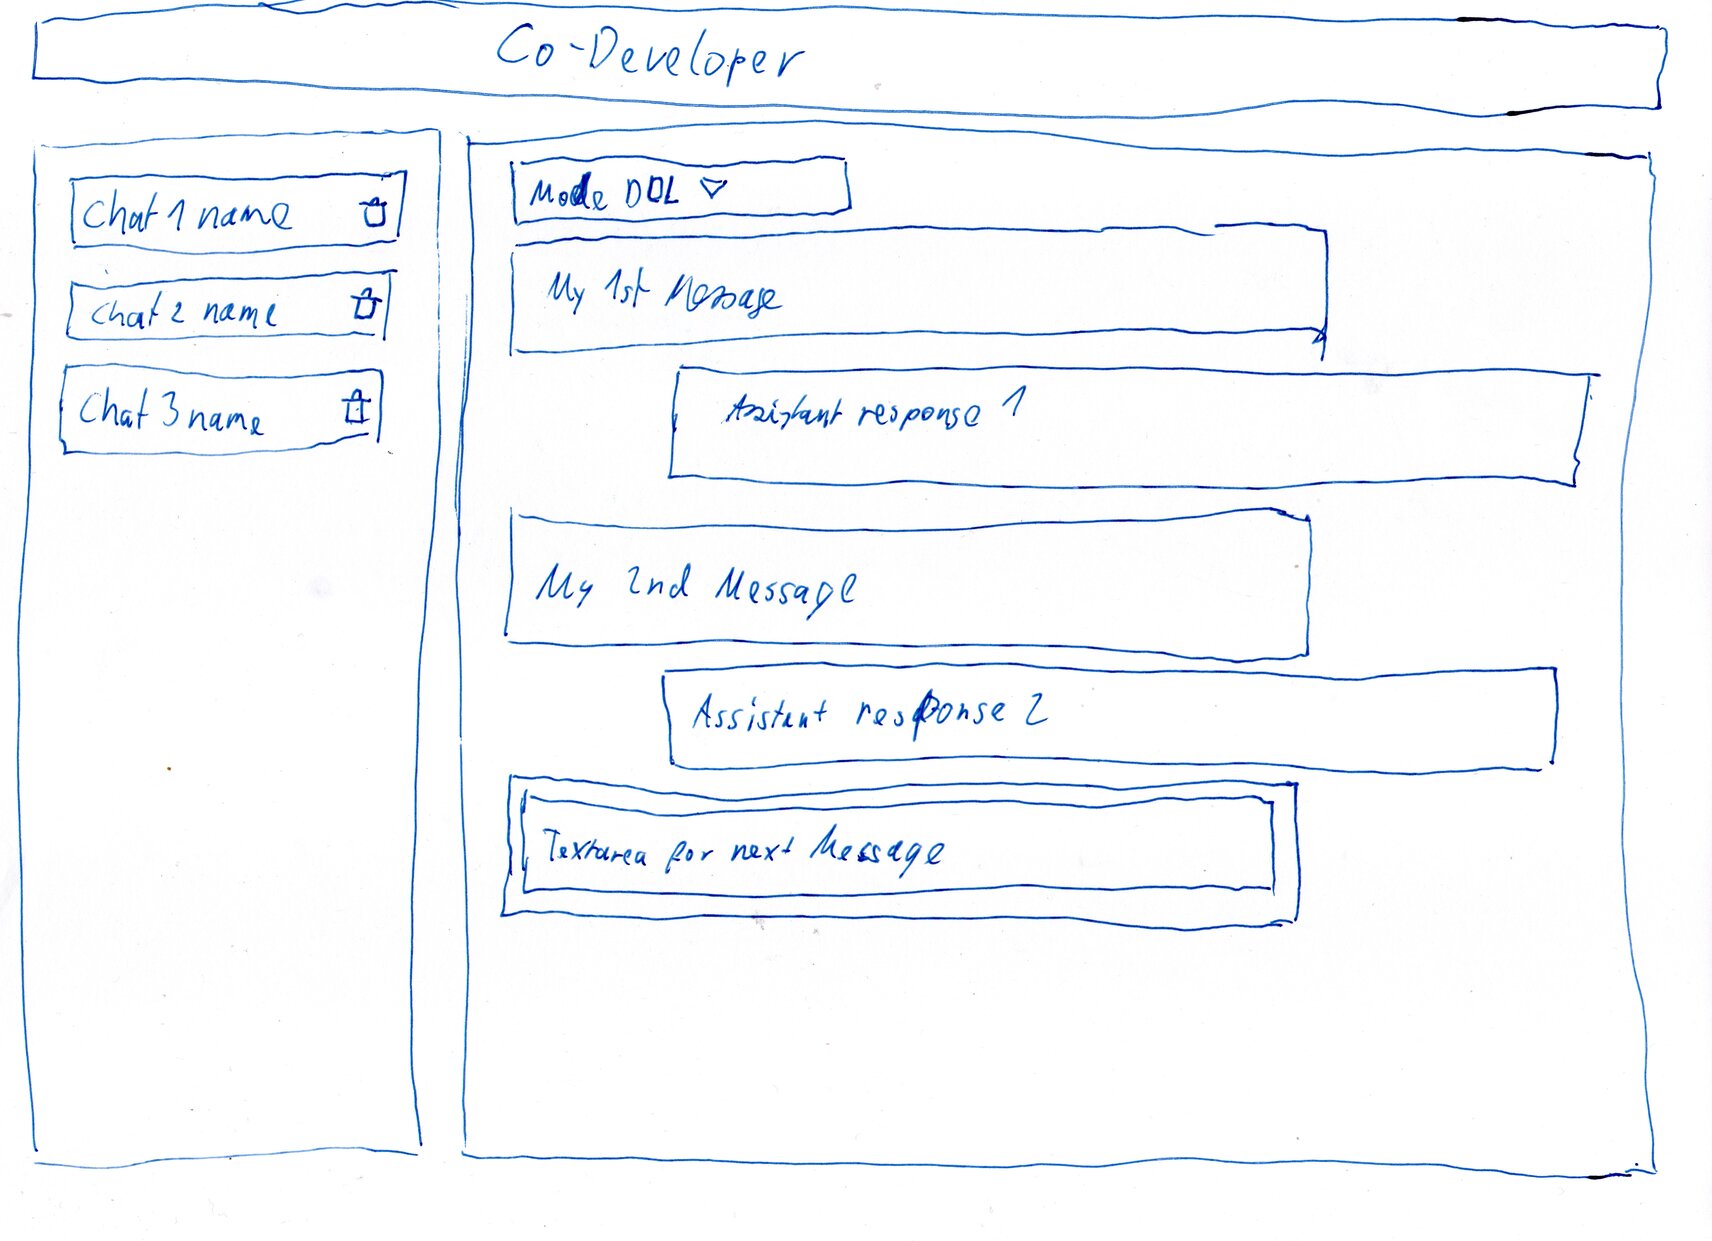 Co-Developer
Chat 1 name
Chat 2 name
Chat 3 name
Mode DDL
My 1st Message
Assistant response 1
My 2nd Message
Assistant response 2
Textarea for next Message